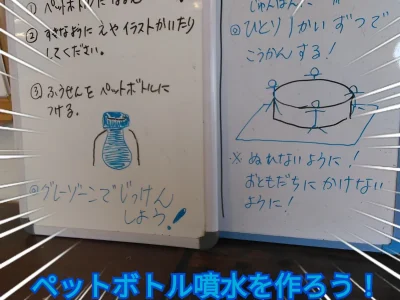 ① ペットボトルに
② すきなように えや イラスト かいたり
してください。
③ ふうせんを ペットボトルに
つける。
④ グレーゾーンで じっけん
しよう!
じゅんばんに
② ひとり1かいずつで
こうかんする!
※ ぬれないように!
おともだちに かけない
ように!
ペットボトル噴水を作ろう!